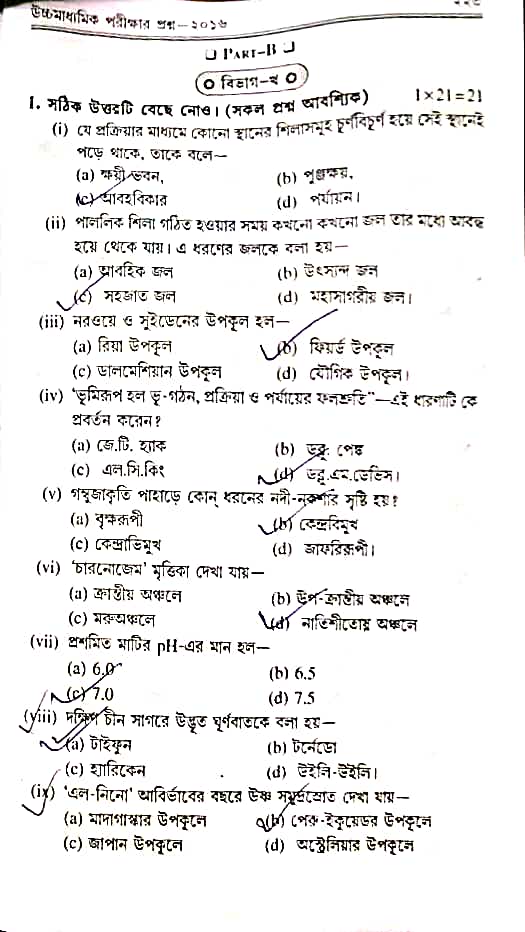 উচ্চমাধ্যমিক পরীক্ষার প্রশ্ন—২০১৬
❑ PART-B ❑
O বিভাগ-খ O
1. সঠিক উত্তরটি বেছে নোও। (সকল প্রশ্ন আবশ্যিক) 1×21=21
(i) যে প্রক্রিয়ার মাধ্যমে কোনো স্থানের শিলাসমূহ চূর্ণবিচূর্ণ হয়ে সেই স্থানেই
পড়ে থাকে, তাকে বলে—
(a) ক্ষয়ীভবন, (b) পুঞ্জক্ষয়,
(c) আবহবিকার (d) পর্যায়ন।
(ii) পাললিক শিলা গঠিত হওয়ার সময় কখনো কখনো জল তার মধ্যে আবদ্ধ
হয়ে থেকে যায়। এ ধরণের জলকে বলা হয়—
(a) আবহিক জল (b) উৎস্যন্দ জল
(c) সহজাত জল (d) মহাসাগরীয় জল।
(iii) নরওয়ে ও সুইডেনের উপকূল হল—
(a) রিয়া উপকূল (b) ফিয়র্ড উপকূল
(c) ডালমেশিয়ান উপকূল (d) যৌগিক উপকূল।
(iv) ‘ভূমিরূপ হল ভূ-গঠন, প্রক্রিয়া ও পর্যায়ের ফলশ্রুতি”—এই ধারণাটি কে
প্রবর্তন করেন?
(a) জে.টি. হ্যাক (b) ডব্লু. পেঙ্ক
(c) এল.সি.কিং (d) ডব্লু.এম.ডেভিস।
(v) গম্বুজাকৃতি পাহাড়ে কোন্ ধরনের নদী-নকশার সৃষ্টি হয়?
(a) বৃক্ষরূপী (b) কেন্দ্রবিমুখ
(c) কেন্দ্রাভিমুখ (d) জাফরিরূপী।
(vi) ‘চারনোজেম’ মৃত্তিকা দেখা যায়—
(a) ক্রান্তীয় অঞ্চলে (b) উপ-ক্রান্তীয় অঞ্চলে
(c) মরুঅঞ্চলে (d) নাতিশীতোষ্ণ অঞ্চলে
(vii) প্রশমিত মাটির pH-এর মান হল—
(a) 6.0 (b) 6.5
(c) 7.0 (d) 7.5
(viii) দক্ষিণ চীন সাগরে উদ্ভূত ঘূর্ণবাতকে বলা হয়—
(a) টাইফুন (b) টর্নেডো
(c) হ্যারিকেন (d) উইলি-উইলি।
(ix) ‘এল-নিনো’ আবির্ভাবের বছরে উষ্ণ সমুদ্রস্রোত দেখা যায়—
(a) মাদাগাস্কার উপকূলে (b) পেরু-ইকুয়েডর উপকূলে
(c) জাপান উপকূলে (d) অস্ট্রেলিয়ার উপকূলে